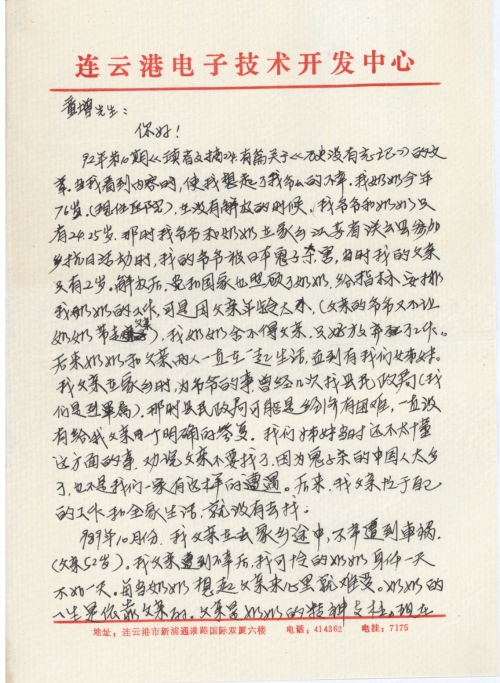 连云港电子技术开发中心
童增先生:
你好!
92年第10期《读者文摘》有篇关于《历史没有忘记》的文
章,当我看到内容时,使我想起了我爷爷的不幸。我奶奶今年
76岁,(现住在),在没有解放的时候,我爷爷和奶奶只
有24.25岁,那时我爷爷和奶奶在家乡江苏省涟云县参加
抗日活动时,我的爷爷被日本鬼子杀害,当时我的父亲
只有2岁。解放后,党和国家也照顾了奶奶,给指标安排
我奶奶的工作,可是因父亲年龄太小,(父亲的爷爷又不让
奶奶带走父亲),我奶奶舍不得父亲,只好放弃了工作。
后来奶奶和父亲两人一直在一起生活,直到有我们姊妹。
我父亲在家乡时,为爷爷的事曾经几次找县民政局(我
们是烈军属),那时县民政局可能是经济有困难,一直没
有给我父亲一个明确的答复。我们姊妹当时还不太懂
这方面的事,劝说父亲不要找了,因为鬼子杀的中国人太多
了,也不是我们一家有这样的遭遇。后来,我父亲忙于自己
的工作和全家生活,就没有去找。
989年10月份,我父亲在去家乡途中,不幸遭到车祸,
(父亲52岁),我父亲遭到不幸后,我可怜的奶奶身体一天
不如一天。每当奶奶想起父亲来心里就难受。奶奶的
人生是依靠父亲的。父亲是奶奶的精神支柱。现在
地址:连云港市新浦通灌路国际双厦六楼 电话:414362 电挂:7175